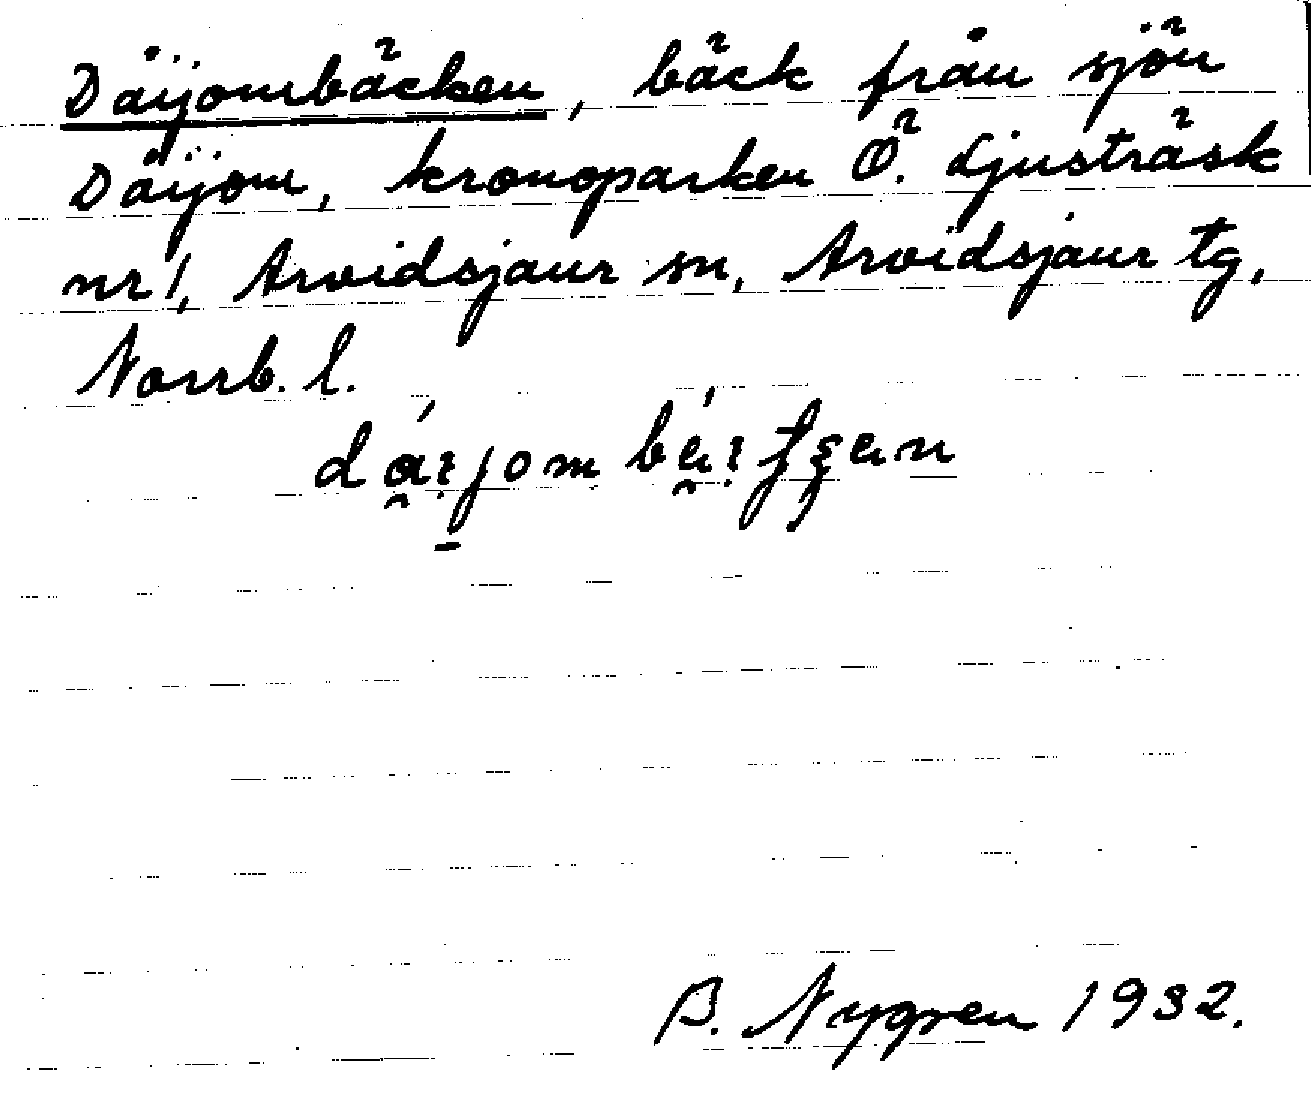 Dåijombäcken, bäck från sjön
Dåijom, kronoparken Ö. Ljusträsk
nr 1, Arvidsjaur sn, Arvidsjaur tg,
Norrb. l.
B. Nygren 1932.